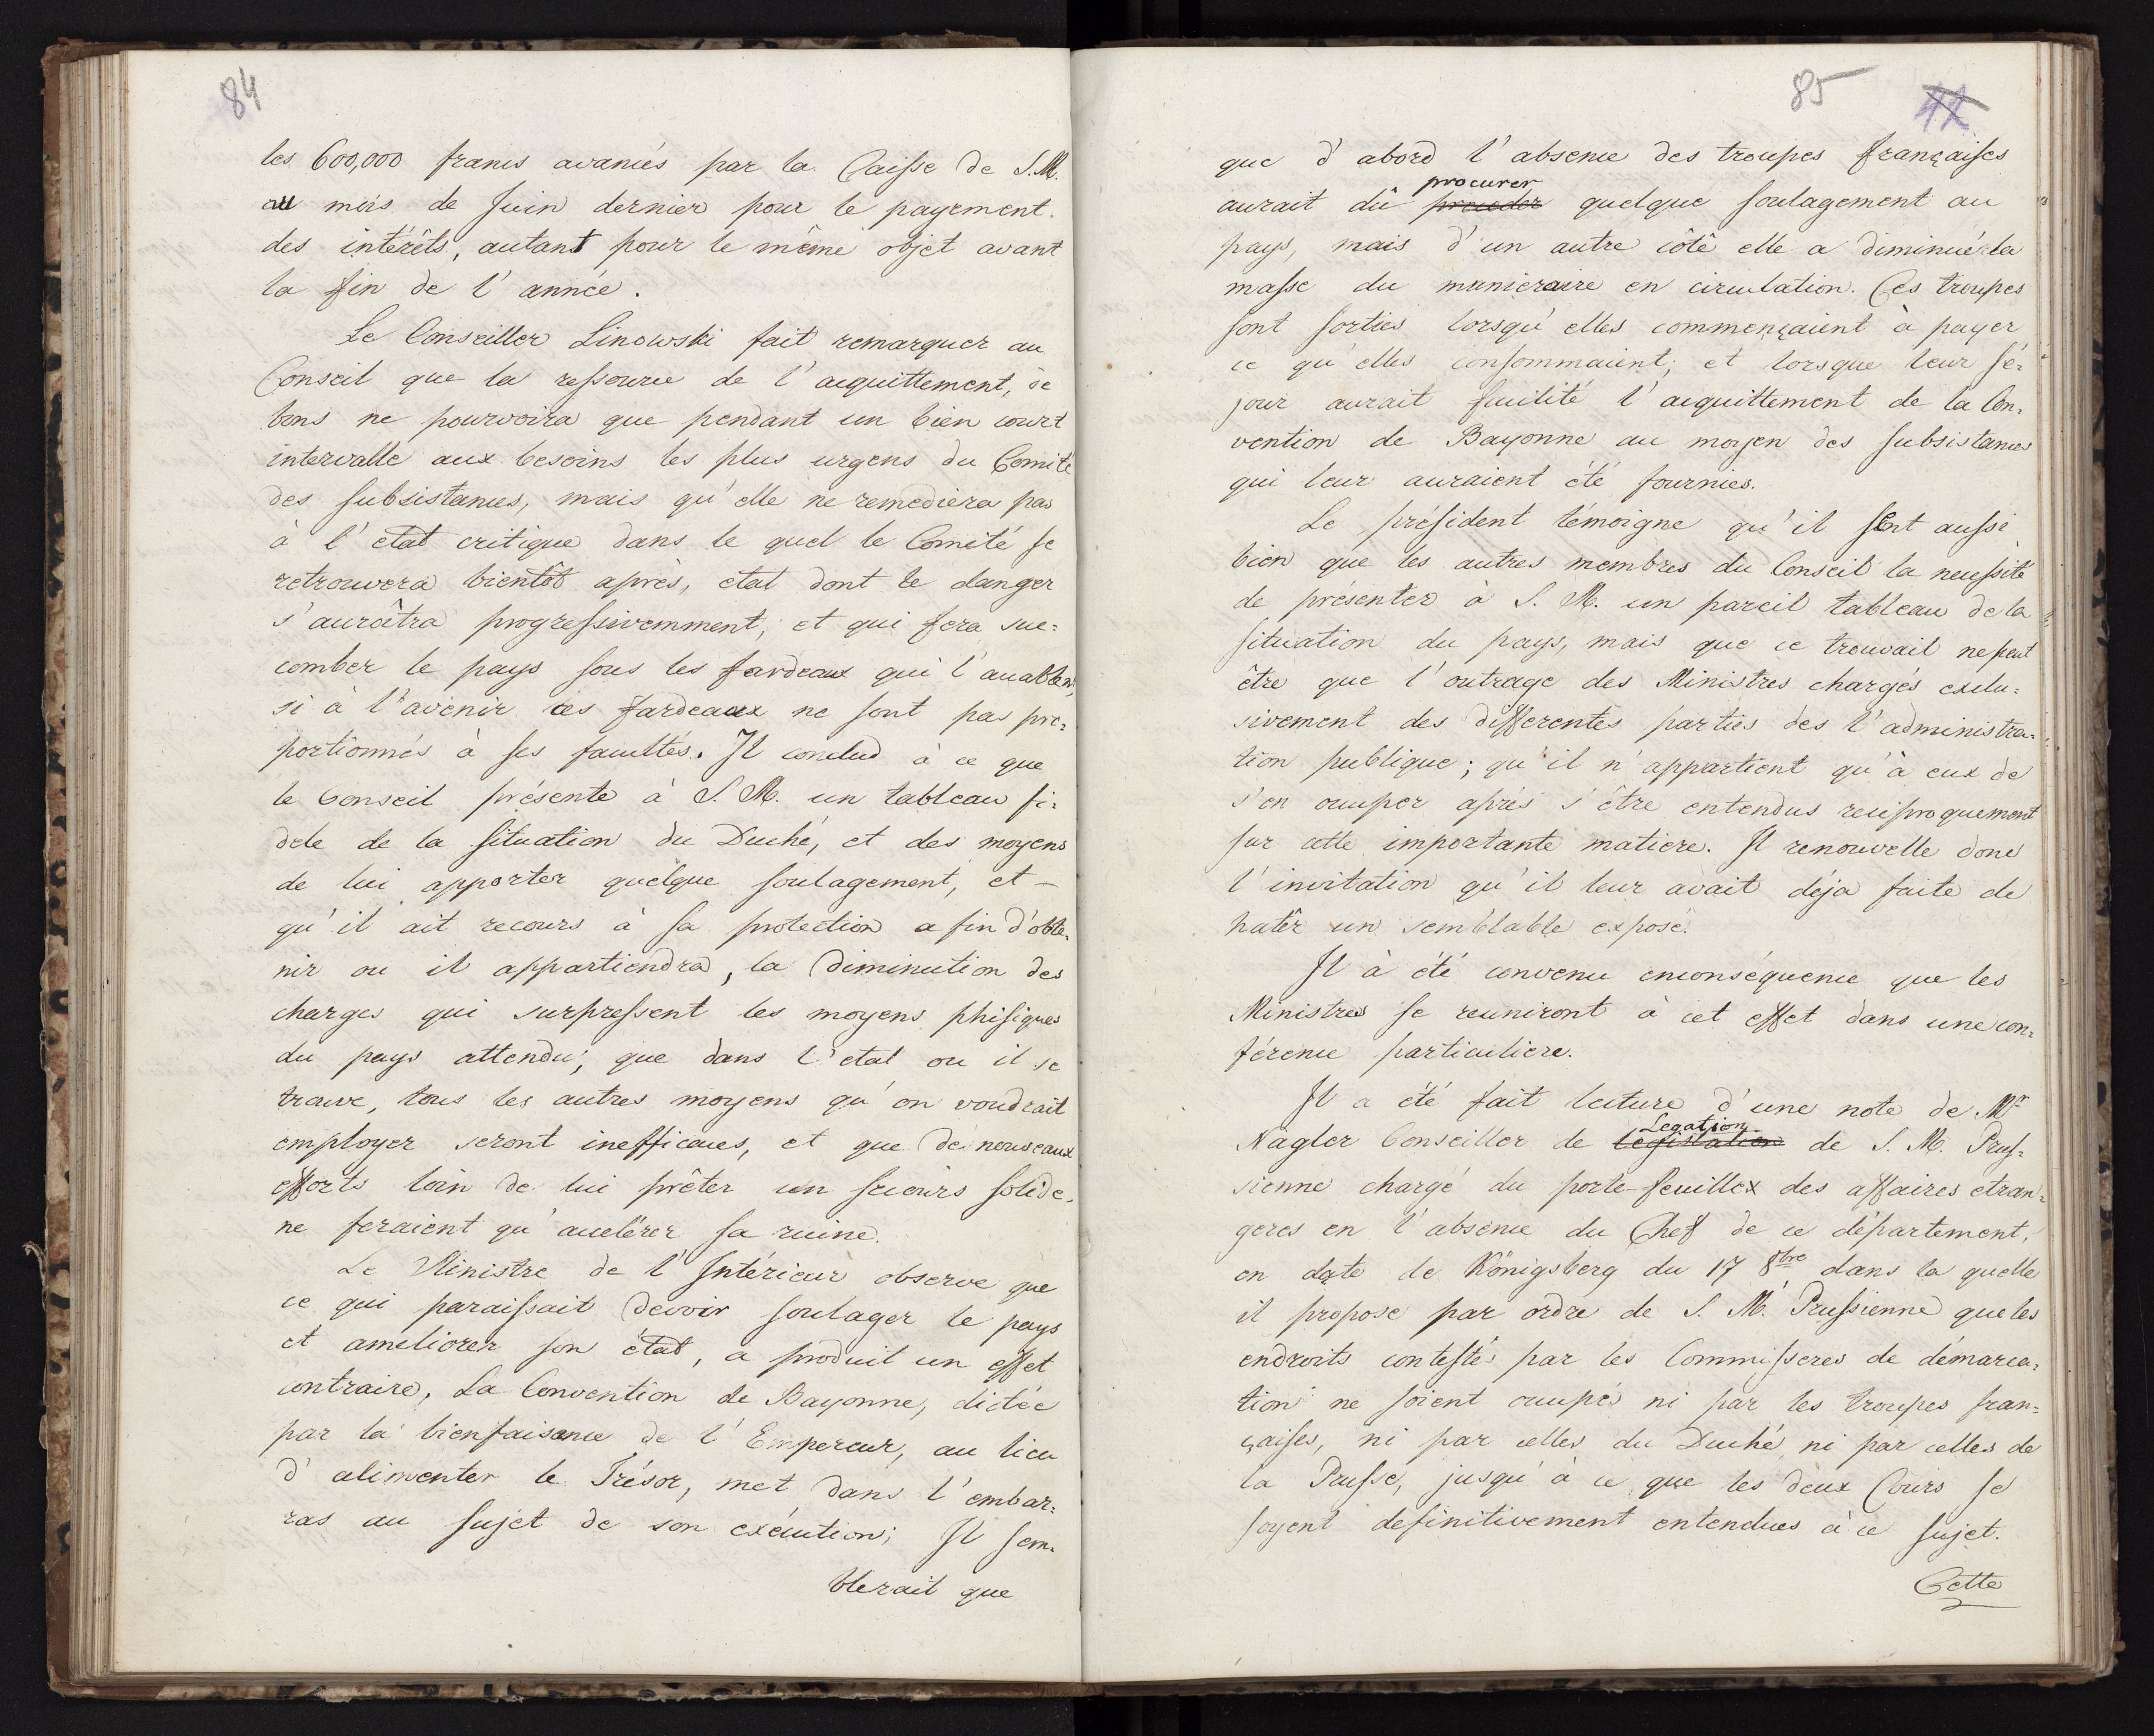 84
les 600,000 francs avancés par la Caisse de S. M.
au mois de Juin dernier pour le payement.
des intérêts, autant pour le même objet avant
la fin de l'année.
Le Conseiller Linowski fait remarquer au
Conseil que la ressource de l'acquittement, de
bons ne pourvoira que pendant un bien court
intervalle aux besoins les plus urgens du Comité
des subsistances, mais qu'elle ne remediera pas
à l'etat critique dans le quel le Comité se
retrouvera bientôt après, etat dont le danger
s'accroîtra progressivemment, et qui fera suc=
comber le pays sous les fardeaux qui l'accablent,
si à l'avenir ces fardeaux ne sont pas pro=
portionnés à ses facultés. Il conclud à ce que
le Conseil présente à S. M. un tableau fi=
dele de la situation du Duché, et des moyens
de lui apporter quelque soulagement, et -
qu'il ait recours à sa protection a fin d'obte=
nir ou il appartiendra, la diminution des
charges qui surpressent les moyens phisiques
du pays attendu, que dans l'etat ou il se
trouve, tous les autres moyens qu'on voudrait
employer seront inefficaces, et que de nouveaux
efforts loin de lui prêter un secours solide,
ne feraient qu'accelérer sa ruine.
Le Ministre de l'Intérieur observe que
ce qui paraissait devoir soulager le pays
et ameliorer son état, a produit un effet
contraire, La Convention de Bayonne, dictée
par la bienfaisance de l'Empereur, au lieu
d'alimenter le Trésor, met dans l'embar=
ras au sujet de son exécution; Il sem=
blerait que
85
42
que d'abord l'absence des troupes françaises
procurer
aurait dû proceder quelque soulagement au
pays, mais d'un autre côté elle a diminué la
masse du munieraire en circulation. Ces troupes
sont sorties lorsqu'elles commençaient à payer
ce qu'elles consommaient; et lorsque leur sé=
jour aurait facilité l'acquittement de la Con=
vention de Bayonne au moyen des subsistances
qui leur auraient été fournies.
Le président témoigne qu'il sent aussi
bien que les autres membres du Conseil la necessité
de présenter à S. M. un pareil tableau de la
situation du pays, mais que ce trouvail ne peut
être que l'outrage des Ministres chargés exclu=
sivement des differentes parties des l'administra=
tion publique; qu'il n'appartient qu'à eux de
s'en occuper aprés s'être entendus reciproquement
sur cette importante matiere. Il renouvelle donc
l'invitation qu'il leur avait déja faite de
hatêr un semblable exposé.
Il à été convenu enconséquence que les
Ministres se reuniront à cet effet dans une con=
férence particuliere.
Il a été fait lecture d'une note de Mr
Legation
Nagler Conseiller de Legislation de S. M. Prus=
sienne chargé du porte-feuillex des affaires etran=
geres en l'absence du Chef de ce département,
en date de Königsberg du 17 8bre dans la quelle
il propose par ordre de S. M. Prussienne que les
endroits contestés par les Commisseres de démarca=
tion ne soient occupés ni par les troupes fran=
çaises, ni par celles du Duché, ni par celles de
la Prusse, jusqu'à ce que les deux Cours se
soyent definitivement entendues à ce sujet.
Cette